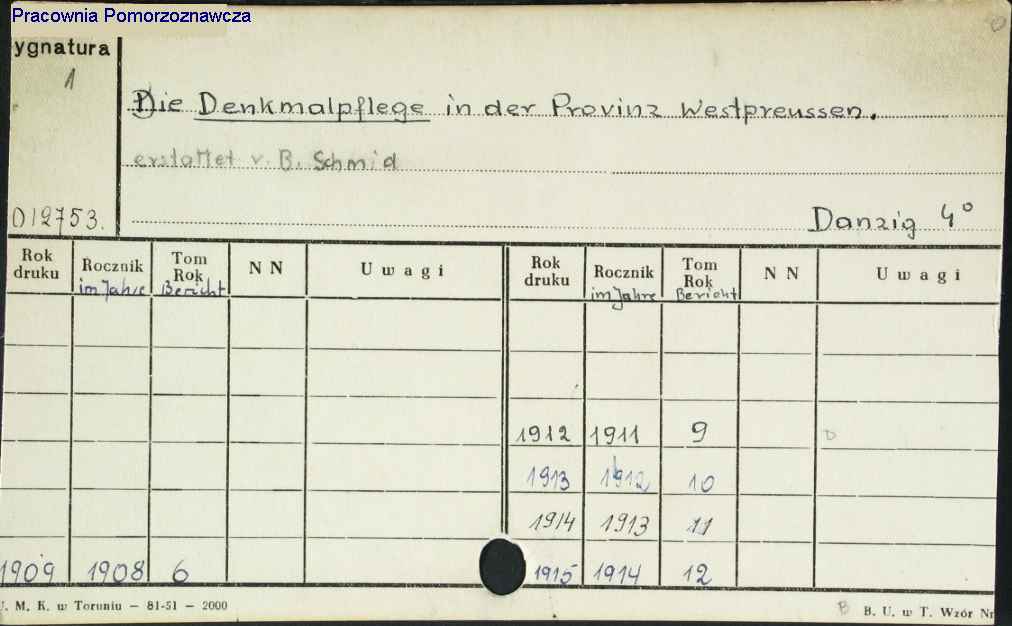 Pracownia Pomorzoznawcza
ygnatura
1
Die Denkmalpflege in der Provinz Westpreussen.
erstattet v. B. Schmid
012753.
Danzig 4°
Rok druku Rocznik im Jahre Tom Rok Bericht N N Uwagi Rok druku Rocznik im Jahre Tom Rok Bericht N N Uwagi
1912 1911 9
1913 1912 10
1914 1913 11
1909 1908 6 1915 1914 12
. M. K. w Toruniu — 81-51 — 2000
B B. U. w T. Wzór Nr